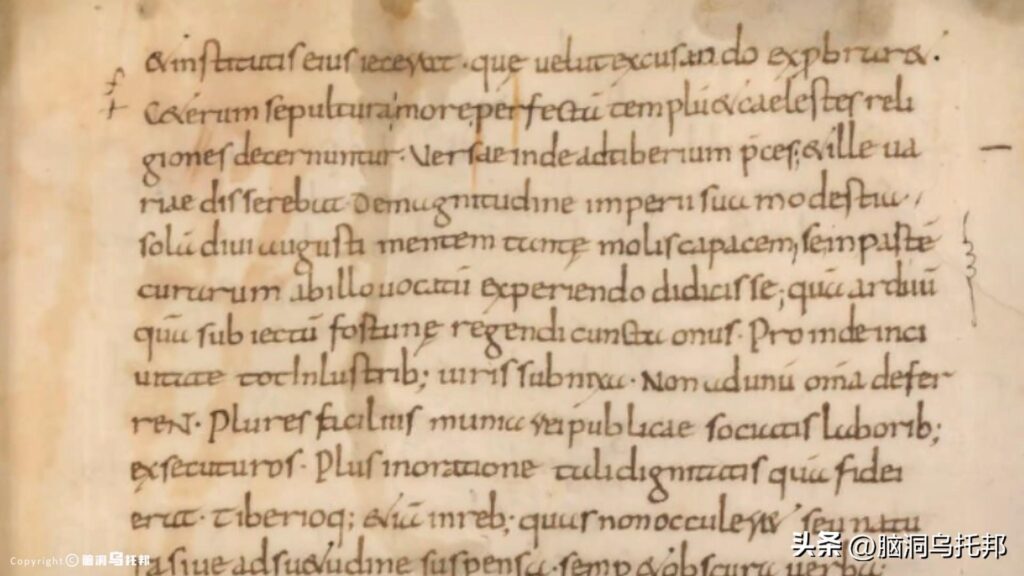 &institutis eius iecerat · quę velut excusando exprobrar&·
C&erum sepultura more perfectū templū & caelestes reli
giones decernuntur · Versae inde ad tiberium p̄ces; & ille ua
riae disserebat · De magnitudine imperii sua modestia·
solā diui augusti mentem tantę molis capacem, se in partē
curarum ab illo uocatū experiendo didicisse; quā arduū
quā subiectū fortunę regendi cuncta onus · Pro inde inci
uitate tot inlustrib; uiris subnixa · Non ad unū om̄a defer
reN · Plures facilius munia rei publicae sociatis laborib;
exsecuturos · Plus in oratione tali dignitatis quā fidei
erat · tiberioq; &iā in reb; quas non occuler& seu natu
ra siue adsu&udine suspensa semp & obscura uerba;
Copyright © 脑洞乌托邦
头条 @脑洞乌托邦